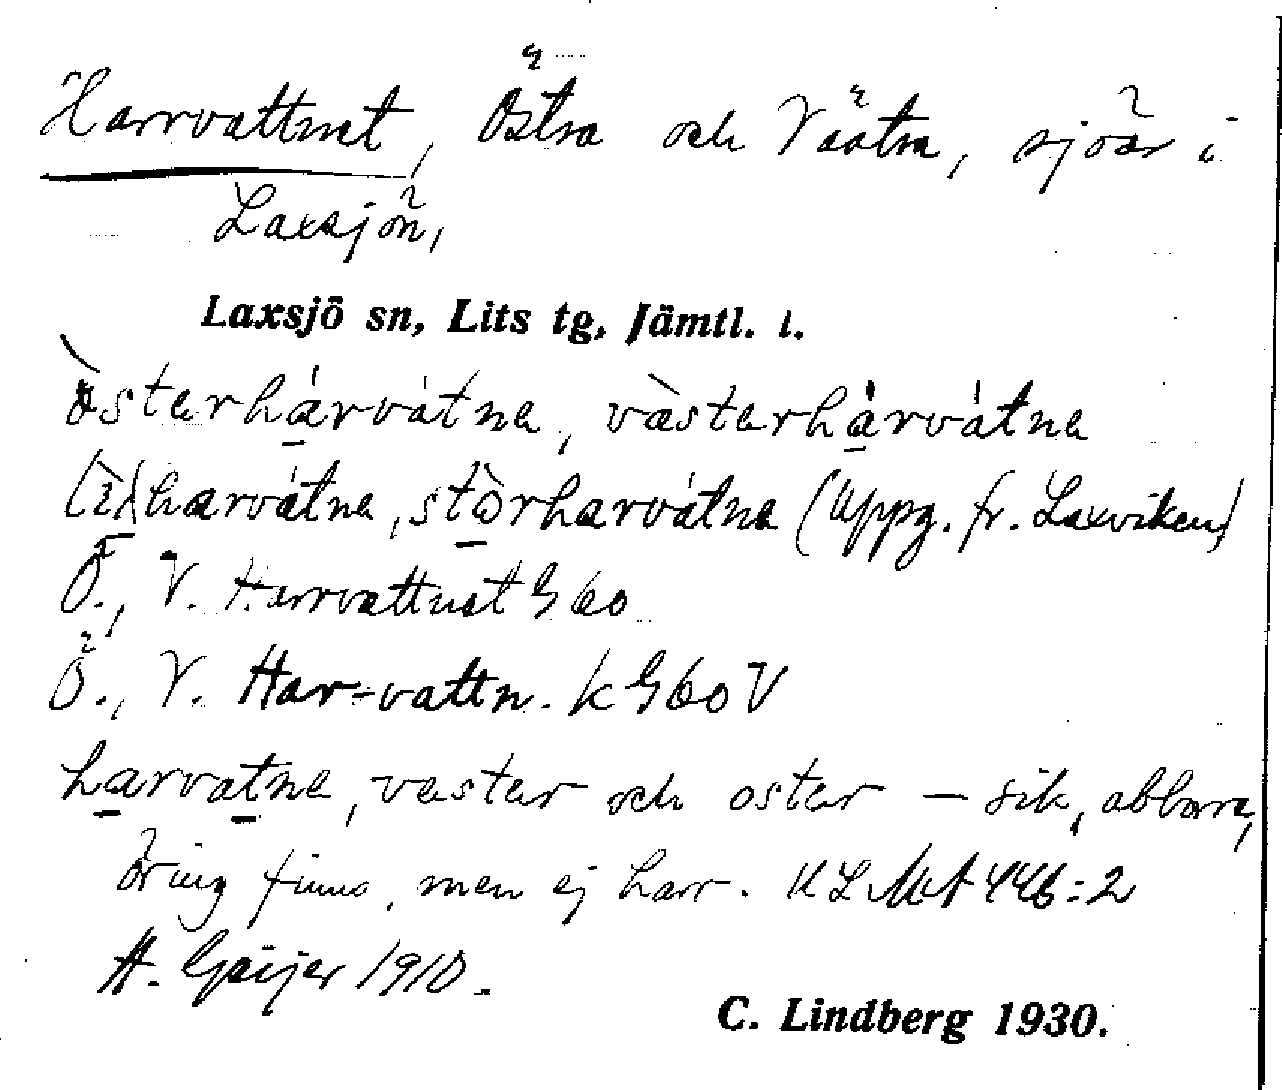 Harrvattnet, Östra och Västra, sjöar i
Laxsjön,
Laxsjö sn, Lits tg, Jämtl. l.
òstarhárvátna, vàstarhárvátna
harvátna, stòrharvátna (Uppg. fr. Laxviken)
Ö., V. Harrvattnet G 60
Ö., V. Har-vattn. k G 60 V
harvatna, vastar och ostar – sik, abborre,
öring finns, men ej harr. ULMA 446:2
H. Geijer 1910.
C. Lindberg 1930.